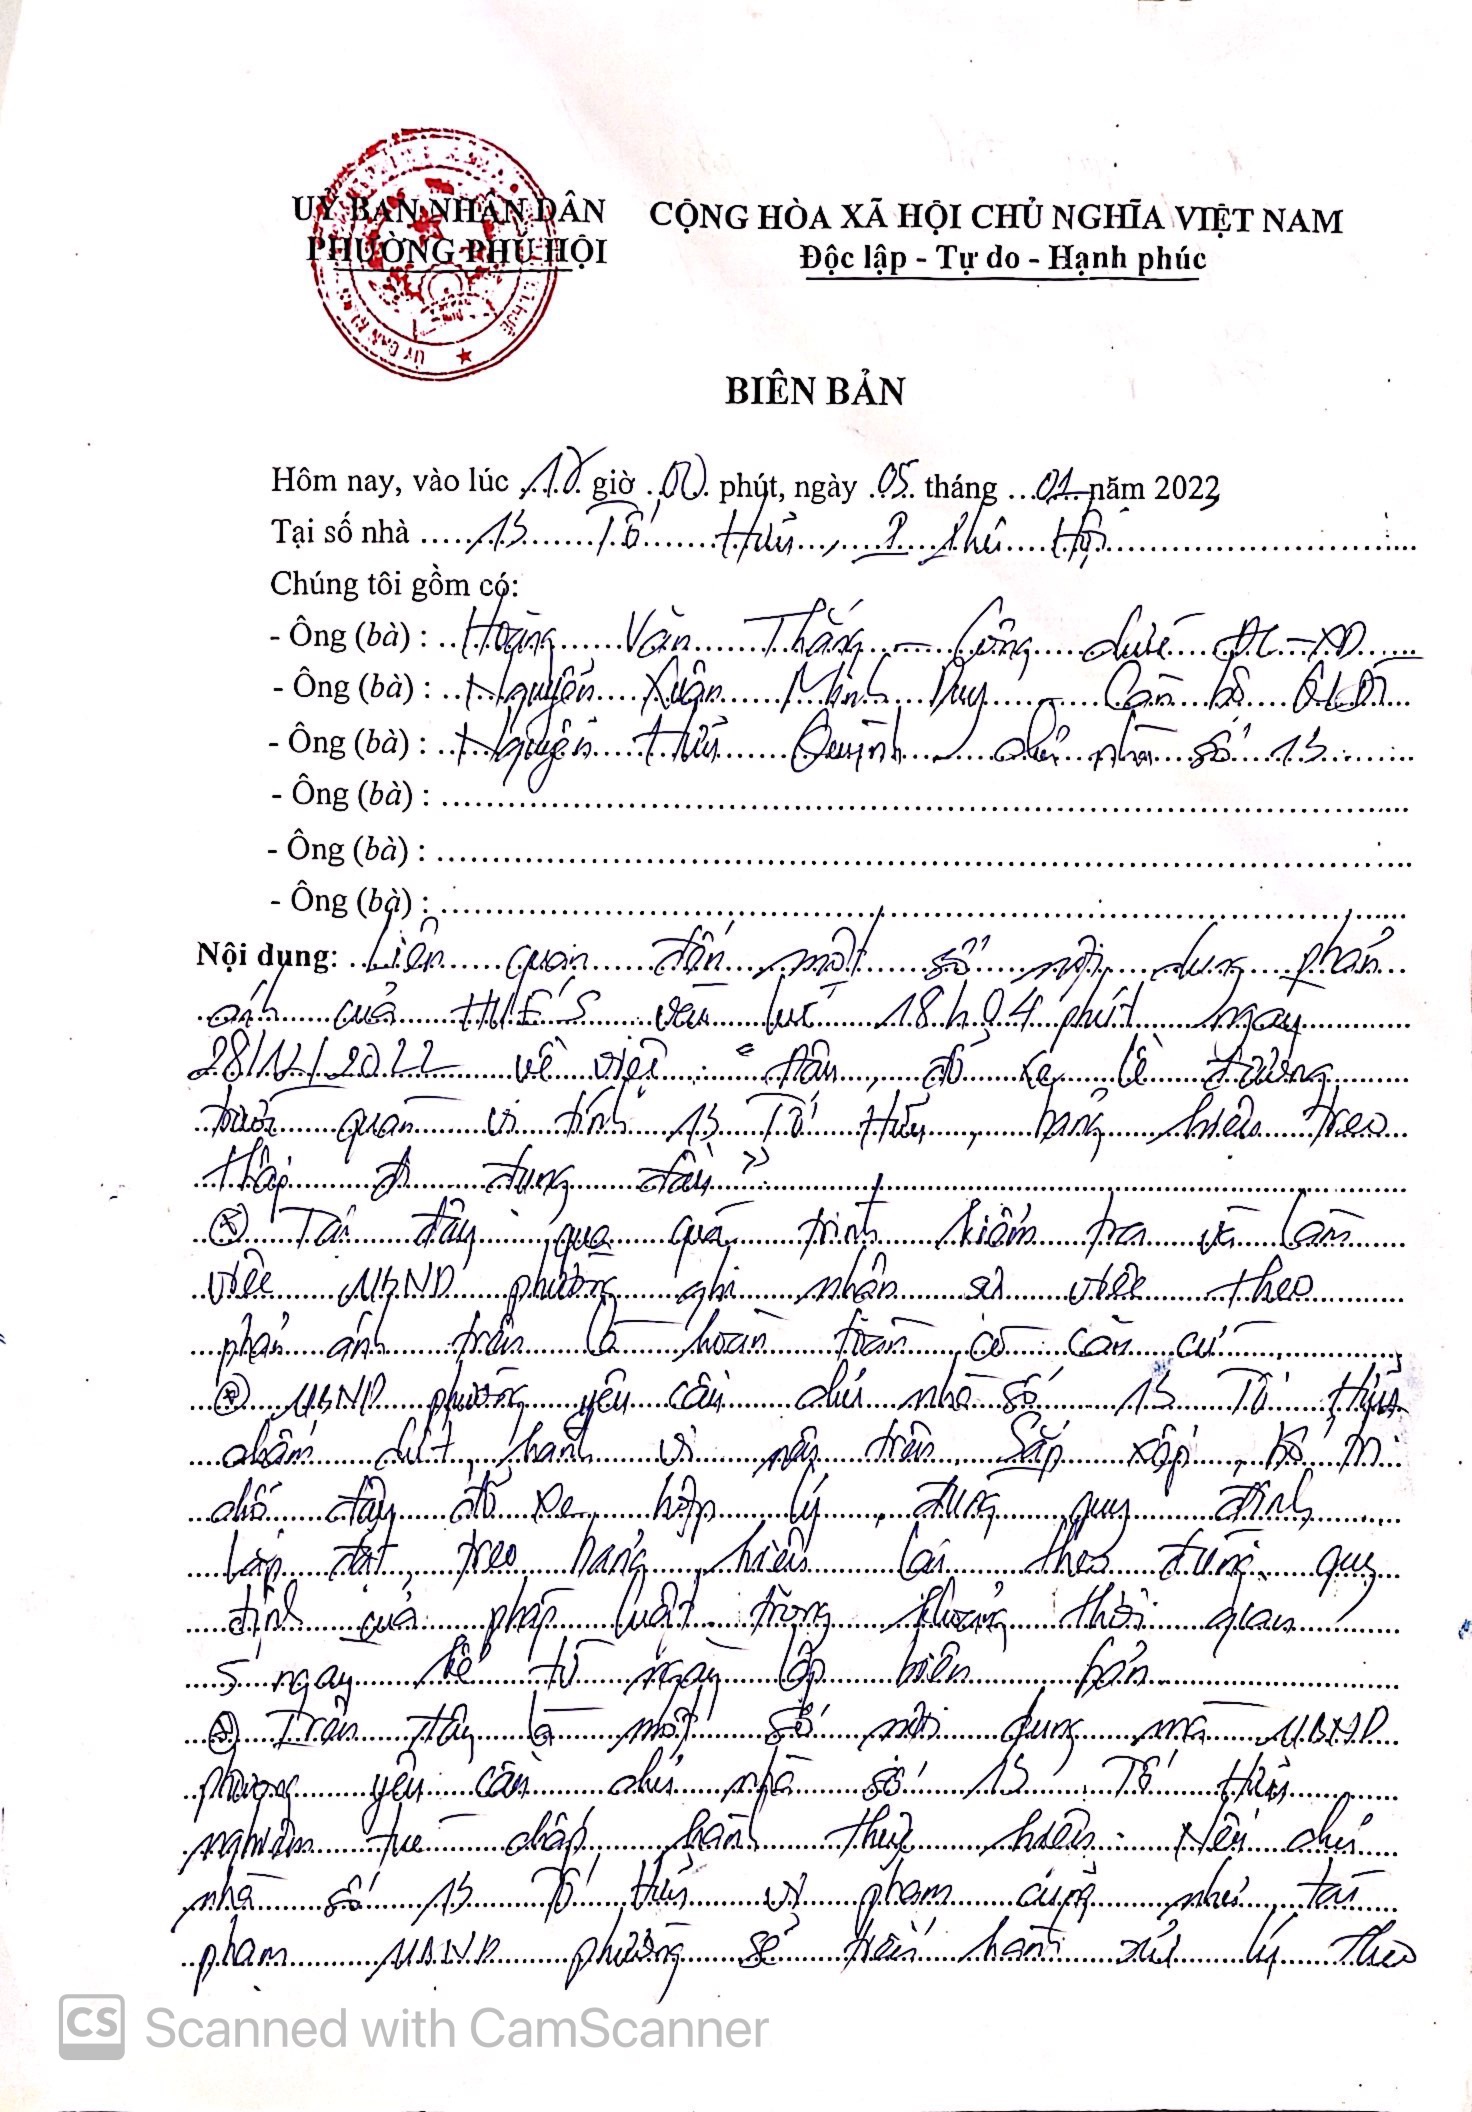 UỶ BAN NHÂN DÂN
PHƯỜNG PHÚ HỘI
CỘNG HÒA XÃ HỘI CHỦ NGHĨA VIỆT NAM
Độc lập - Tự do - Hạnh phúc
BIÊN BẢN
Hôm nay, vào lúc 10 giờ 00 phút, ngày 05 tháng 01 năm 2023
Tại số nhà 13 Tố Hữu, P. Phú Hội
Chúng tôi gồm có:
- Ông (bà) : Hoàng Văn Thắng - Công chức ĐC-XD
- Ông (bà) : Nguyễn Xuân Minh Duy - Cán bộ QLĐT
- Ông (bà) : Nguyễn Hữu Quỳnh - chủ nhà số 13
- Ông (bà) :
- Ông (bà) :
- Ông (bà) :
Nội dung: Liên quan đến một số nội dung phản
ánh của HUẾ S vào lúc 18h04 phút ngày
28/12/2022 về việc: "đậu, đỗ xe lề đường
trước quán vi tính 13 Tố Hữu, bảng hiệu treo
thấp đi đụng đầu".
Tại đây qua quá trình kiểm tra và làm
việc UBND phường ghi nhận sự việc theo
phản ánh trên là hoàn toàn có căn cứ.
UBND phường yêu cầu chủ nhà số 13 Tố Hữu
chấm dứt hành vi nêu trên, sắp xếp, bố trí
chỗ đậy đỗ xe hợp lý, đúng quy định,
lắp đặt, treo bảng hiệu lại theo đúng quy
định của pháp luật trong khoảng thời gian
5 ngày kể từ ngày lập biên bản
Trên đây là một số nội dung mà UBND
phường yêu cầu chủ nhà số 13 Tố Hữu
nghiêm túc chấp hành thực hiện. Nếu chủ
nhà số 13 Tố Hữu vi phạm cũng như tái
phạm UBND phường sẽ tiến hành xử lý theo
CS Scanned with CamScanner